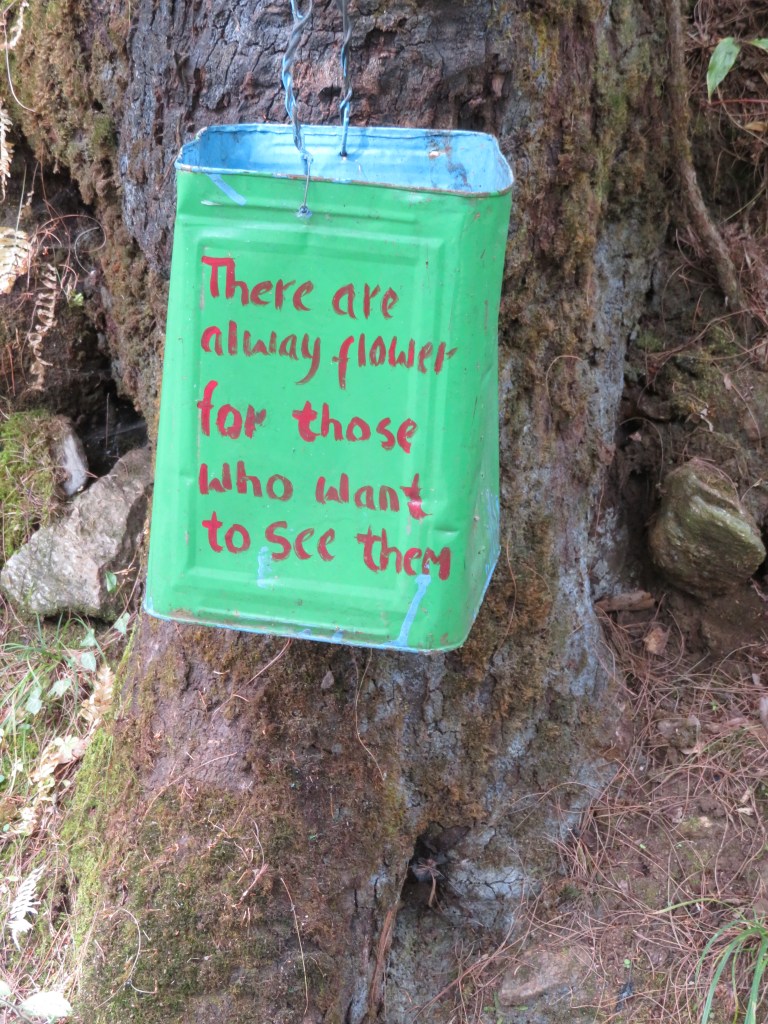 There are
alway flower
for those
who want
to see them